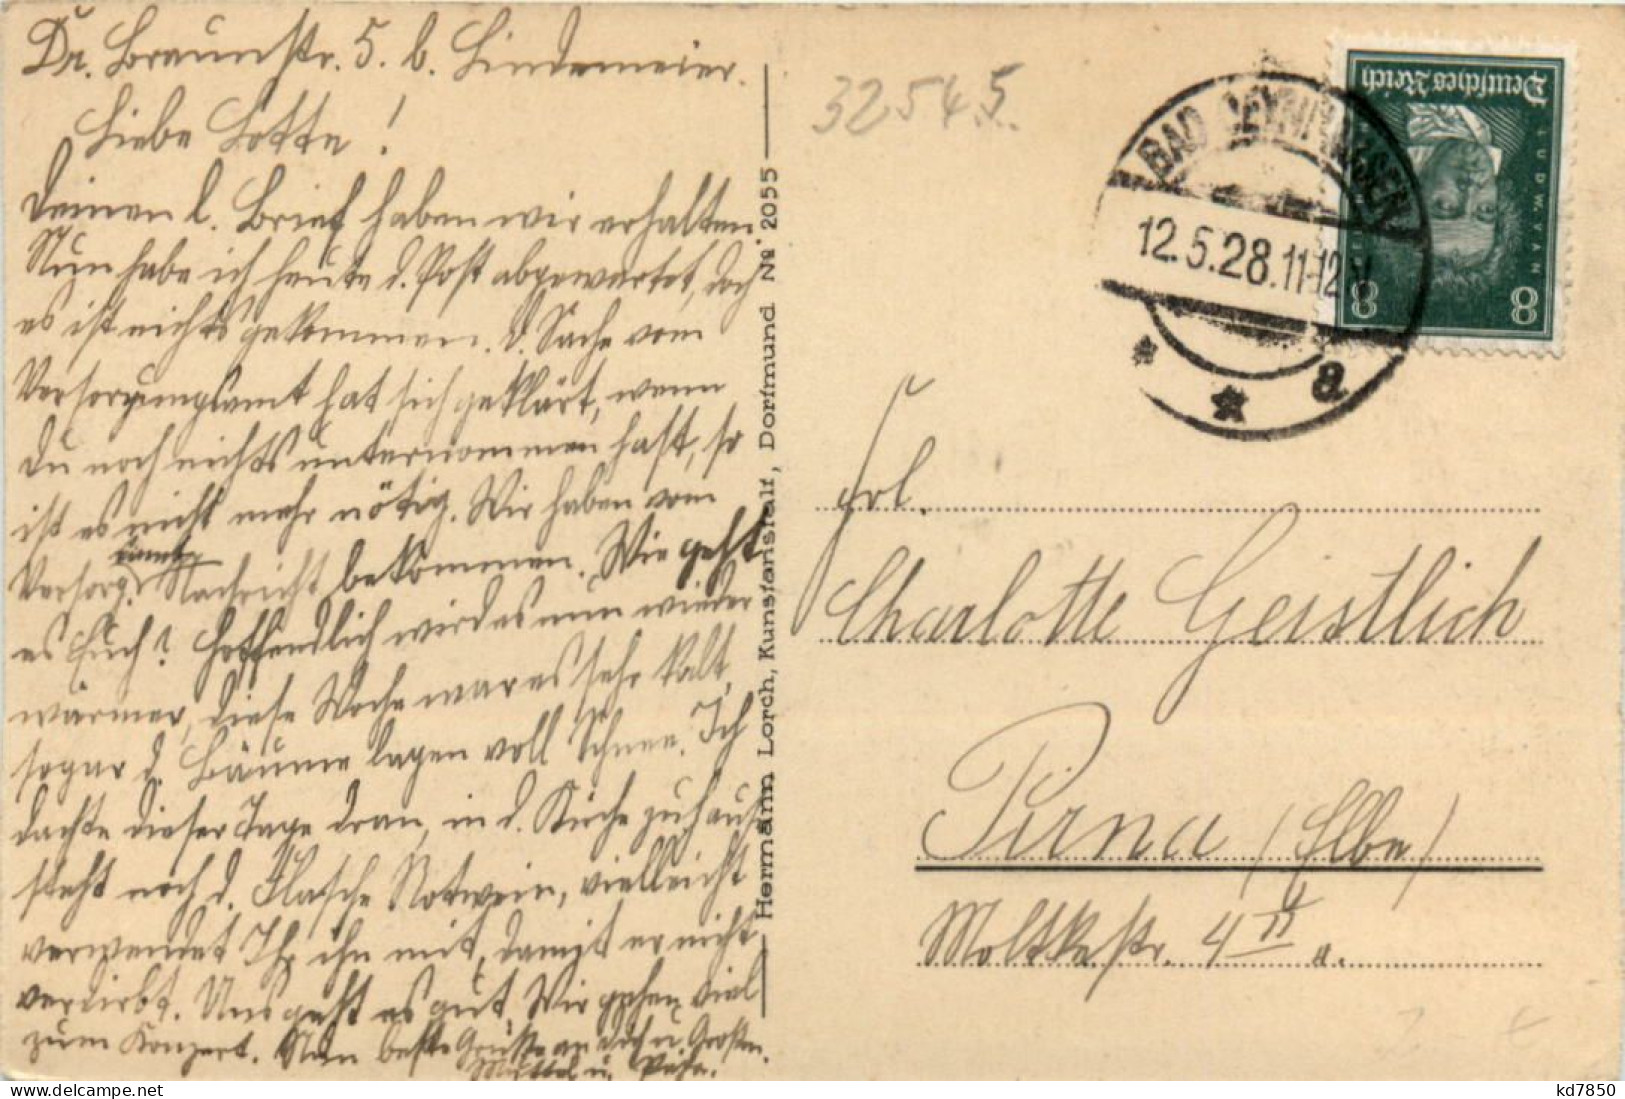 Dr. Braunstr. 5. b. Lindemeier.
Liebe Lotte!
Deinen l. Brief haben wir erhalten.
Nun habe ich heute d. Post abgewartet, doch
es ist nichts gekommen. d. Sache vom
Versorgungsamt hat sich geklärt, wenn
Du noch nichts unternommen hast, so
ist es nicht mehr nötig. Wir haben vom
Versorg. amt Nachricht bekommen. Wie geht
es Euch? Hoffendlich wird es nun wieder
wärmer, diese Woche war es sehr kalt,
sogar d. Bäume lagen voll Schnee. Ich
dachte dieser Tage dran, in d. Küche zuhause
steht noch d. Flasche Rotwein, vielleicht
verwendet Ihr ihn mit, damit er nicht
verdirbt. Uns geht es gut. Wir gehen viel
zum Konzert. Nun beste Grüße an dich u. Großen.
Mittel u.
Hermann Lorch, Kunstanstalt, Dortmund № 2055
32545
BAD OEYNHAUSEN
12.5.28.11-12V
* * a
Deutsches Reich
LUDW. VAN
8 8
Frl.
Charlotte Geistlich
Pirna (Elbe)
Moltkestr. 4 II a.
delcampe.net
kd7850